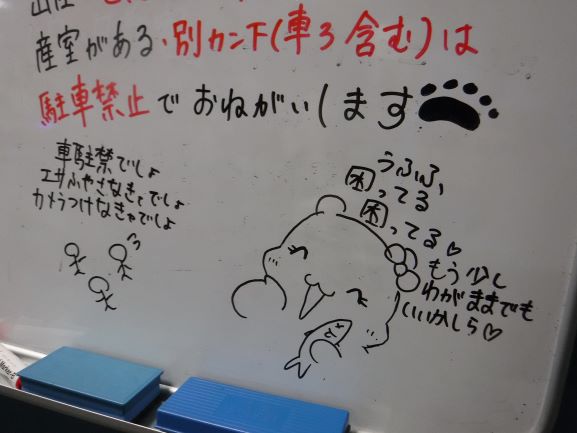 産室がある、別カン下(車3含む)は
駐車禁止でおねがいします
車駐禁でしょ
エサふやさなきゃでしょ
カメラつけなきゃでしょ
うふふ、
困ってる
困ってる♡
もう少し
わがままでも
いいかしら♡